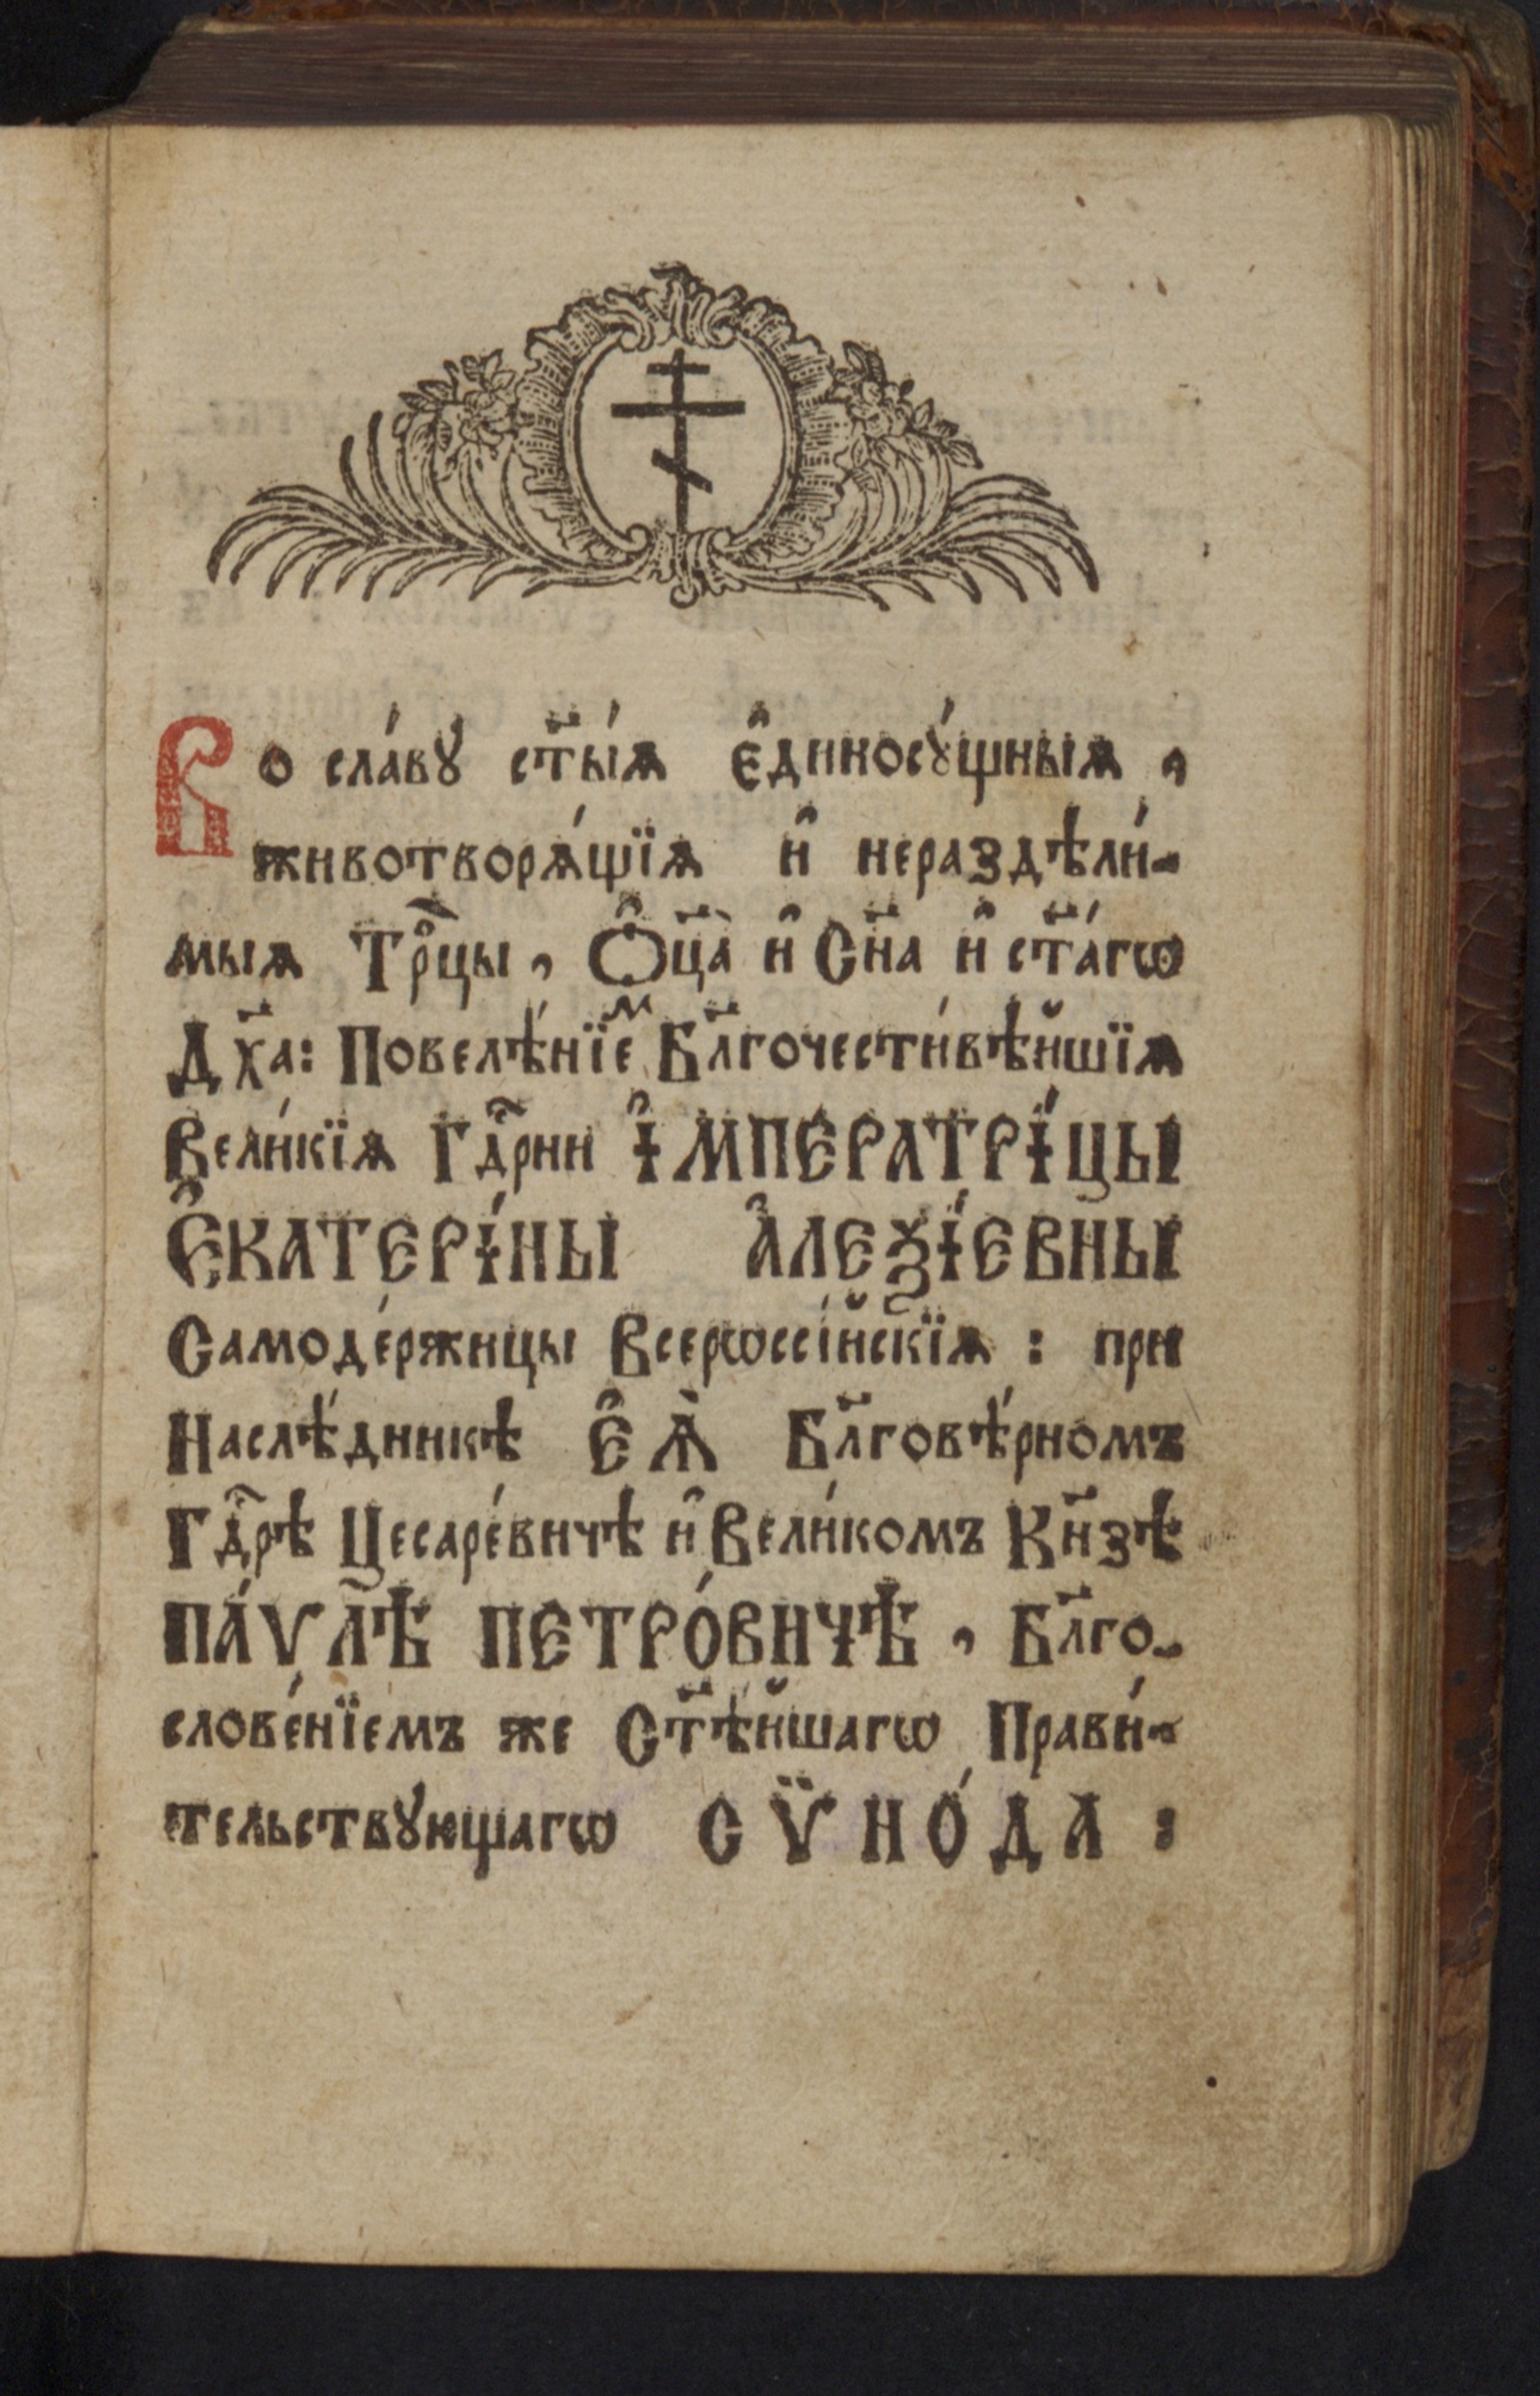 Во сла́вꙋ ст҃ы́ѧ є҆диносꙋ́щныѧ ,
животворѧ́щїѧ и҆ нераздѣли́-
мыѧ Трⷪ҇цы , Ѻ҆ц҃а̀ и҆ Сн҃а и҆ ст҃а́гѡ
Дх҃а: Повелѣ́нїеⷨ Бл҃гочести́вѣйшїѧ
Вели́кїѧ Гдⷭ҇рни І҆МПЕРАТРІ́ЦЫ
Е҆КАТЕРІ́НЫ А҆ЛЕѮІ́ЕВНЫ
Самоде́ржицы Всерѡссі́йскїѧ : при
Наслѣ́дникѣ Е҆Ѧ̀ Бл҃говѣ́рномъ
Гдⷭ҇рѣ Цесаре́вичѣ и҆ Вели́комъ Кн҃зѣ
ПА́ѴЛѢ ПЕТРО́ВИЧѢ , Бл҃го-
слове́нїемъ же Ст҃ѣ́йшагѡ Прави́-
тельствꙋющагѡ СѶНО́ДА :